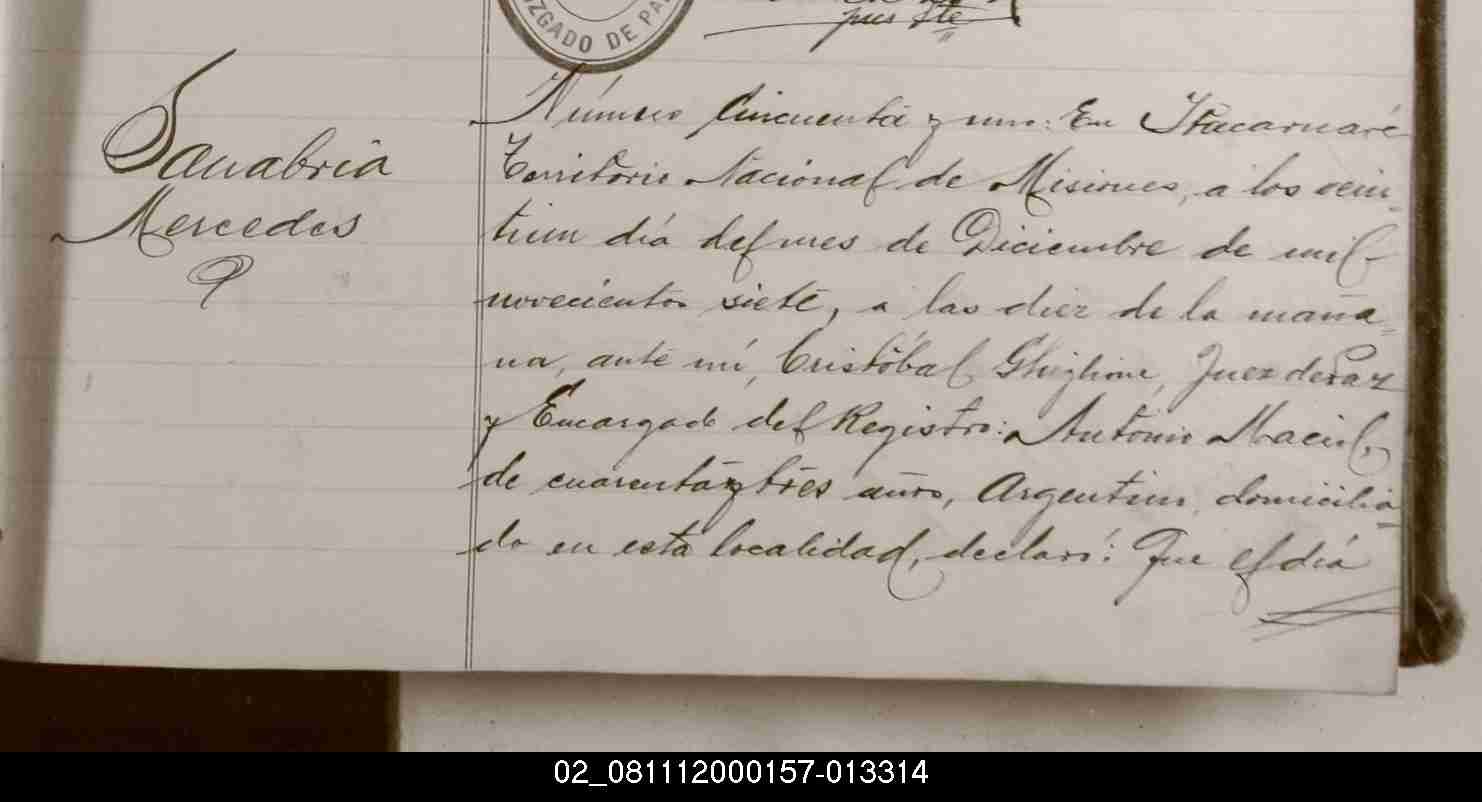 JUZGADO DE PA
Sanabria
Mercedes
Número Cincuenta y uno: En Itacaruaré
Territorio Nacional de Misiones, a los vein-
tiun día del mes de Diciembre de mil
novecientos siete, a las diez de la maña=
na, ante mí, Cristóbal Ghiglione, Juez de Paz
y Encargado del Registro: Antonio Maciel,
de cuarenta y tres años, Argentino, domicilia=
do en esta localidad, declaró: Que el día
02_081112000157-013314